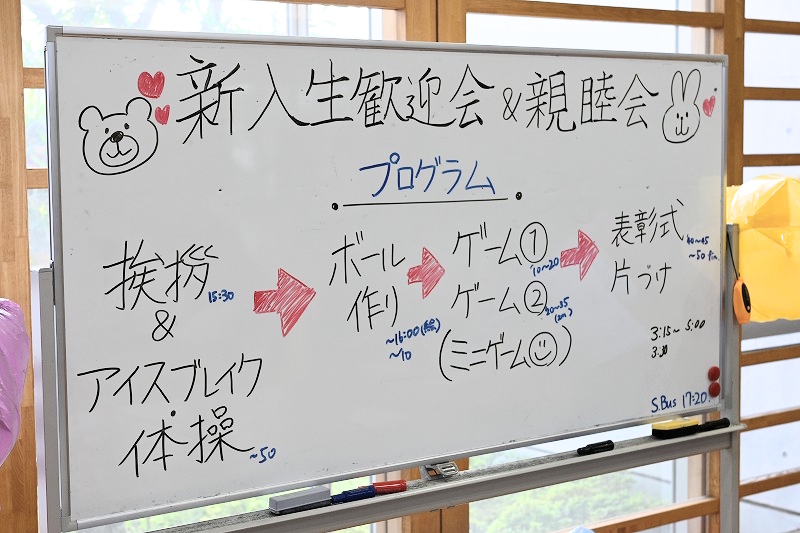 新入生歓迎会&親睦会
プログラム
挨拶 15:30
&
アイスブレイク
体操 ~50
ボール
作り
~16:00(絵)
~10
ゲーム①
10~20
ゲーム②
20~35
(ミニゲーム)
表彰式
40~45
~50 fin.
片づけ
3:15~5:00
3:30
S.Bus 17:20.